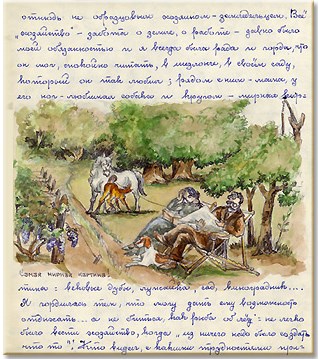 отнюдь не образцовым хозяином-земледельцем. Всё
"хозяйство" - забота о земле, о работе - давно было
моей обязанностью и я всегда была рада и горда, что
он мог, спокойно читать, в шезлонге, в своём саду,
который он так любил; рядом с ним - мама, у
его ног - любимая собака и кругом - мирная
"самая мирная картина"
тина: вековые дубы, лужайка, сад, виноградник....
Я гордилась тем, что могу дать ему возможность
отдыхать... а не биться, как рыба об лёд: не легко
было вести хозяйство, когда "из ничего надо было создать
что-то"! Кто видел, с какими трудностями